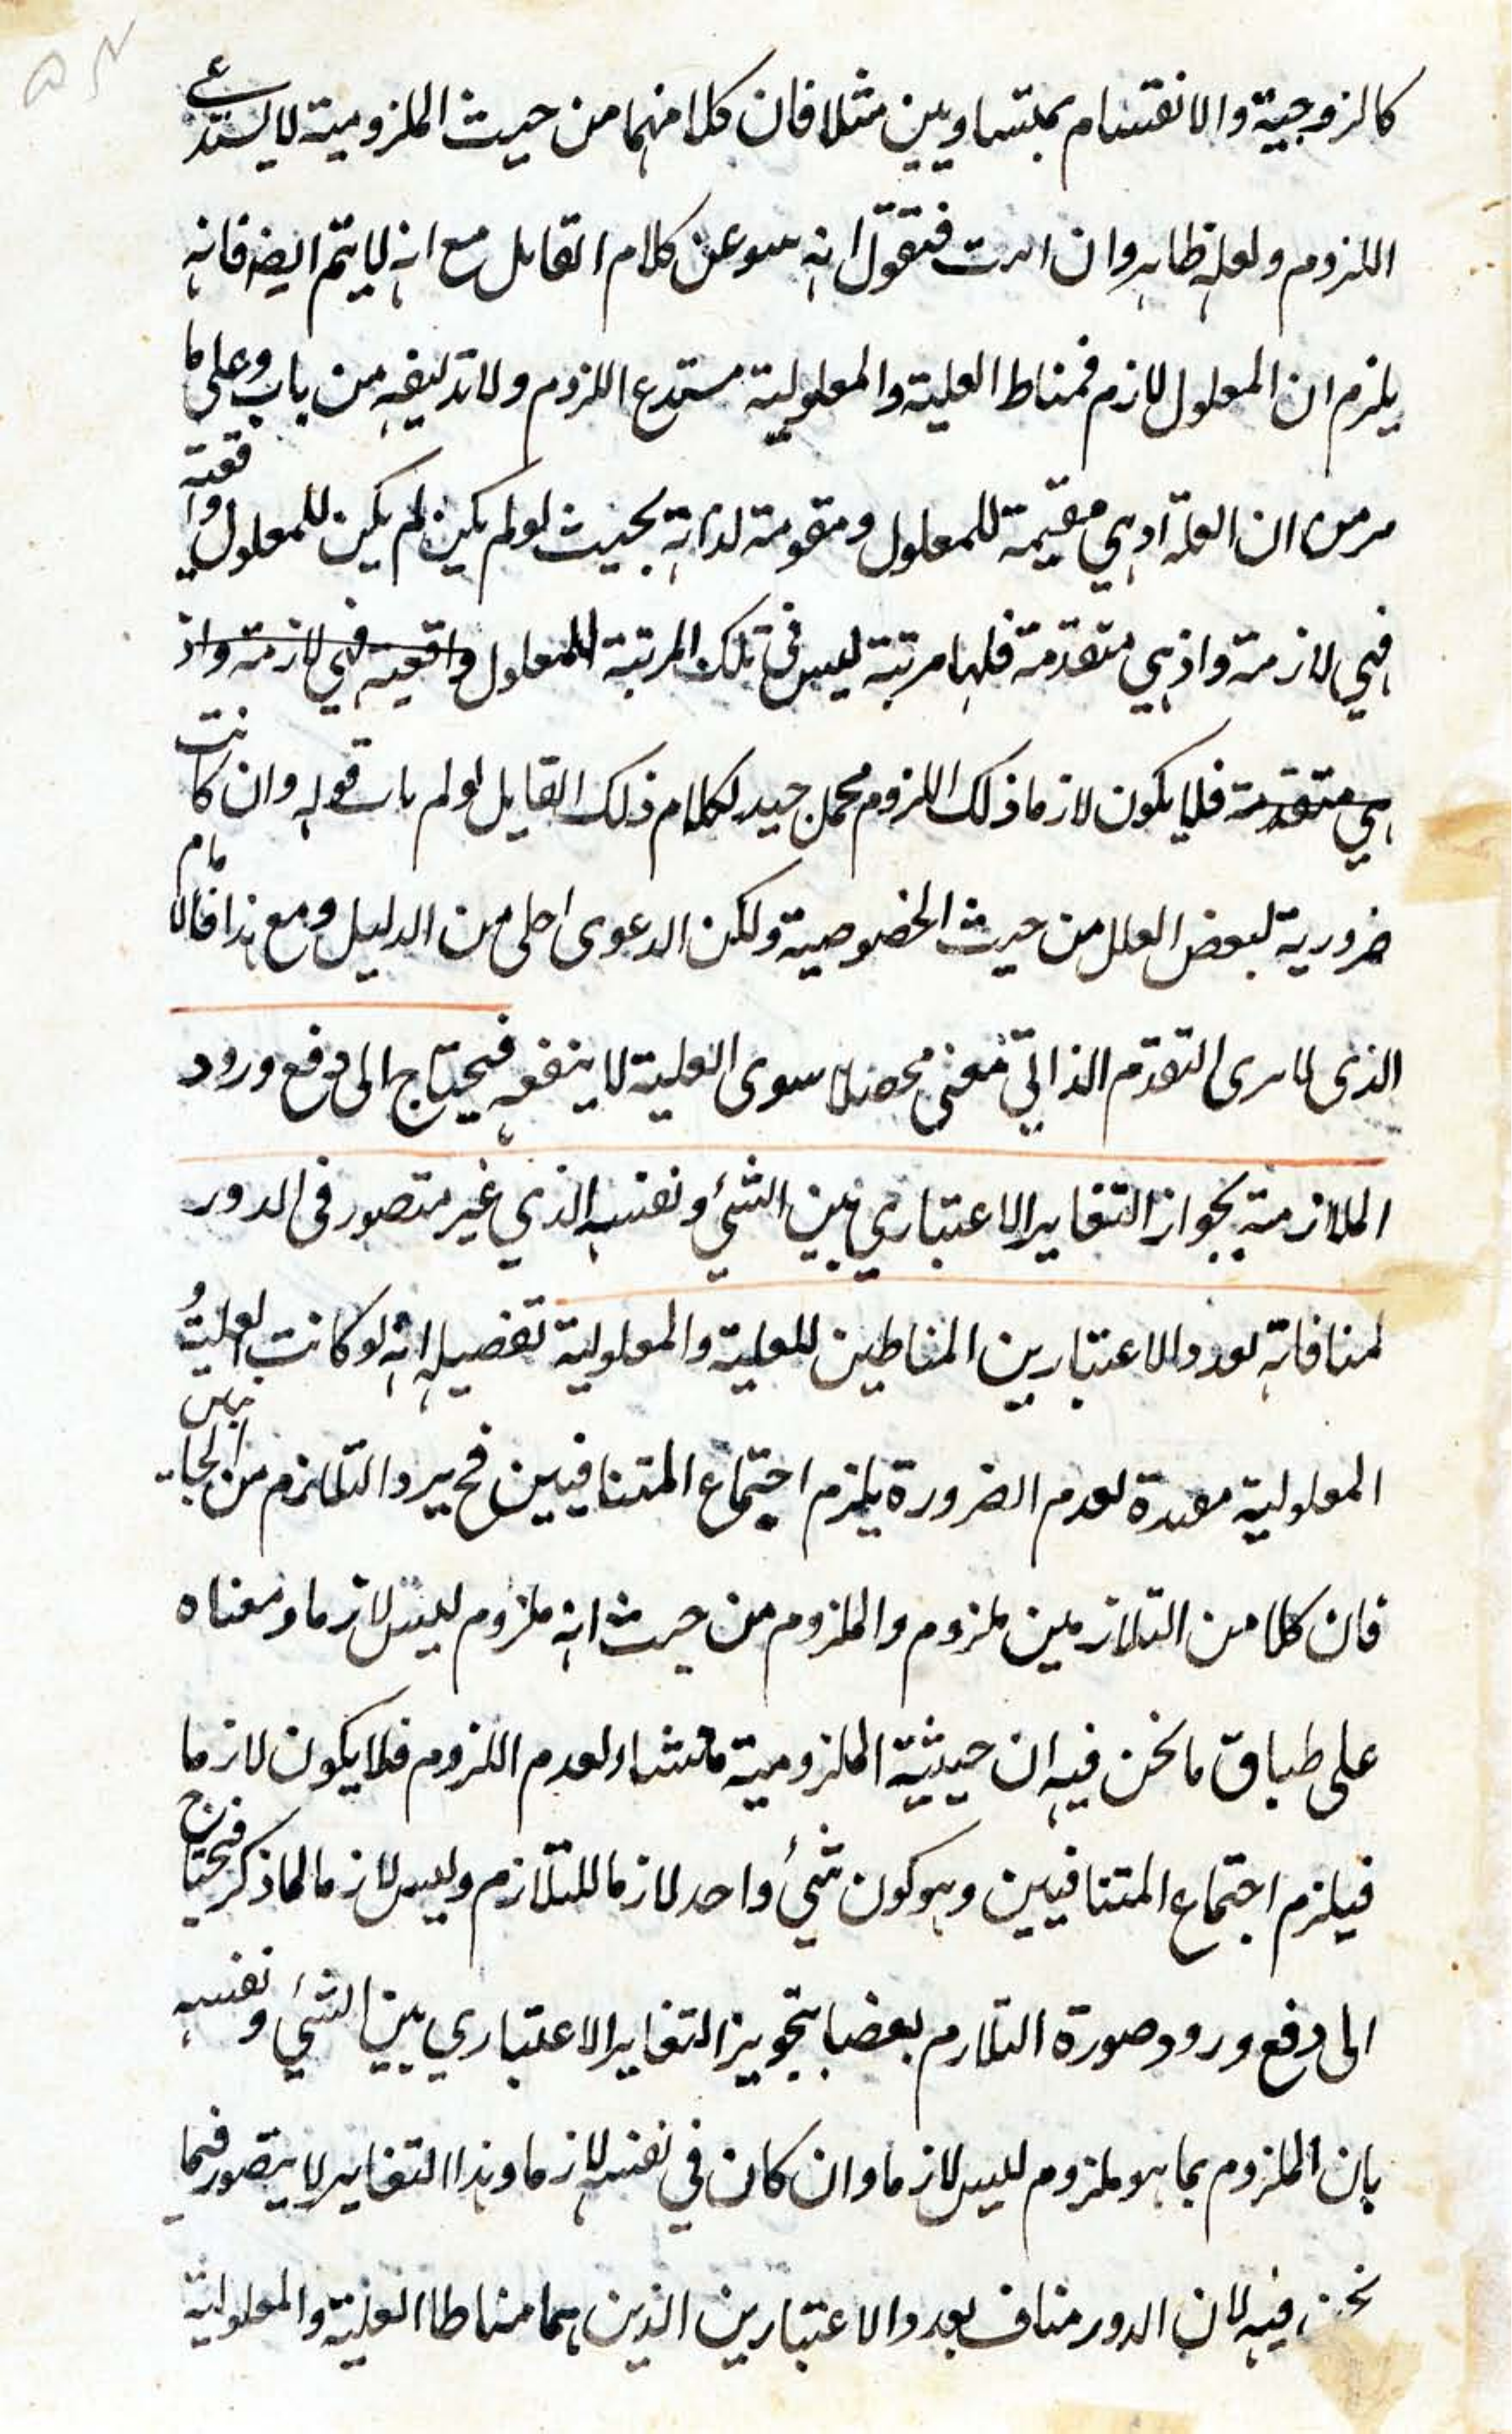 كالزوجية والانقسام بمتساويين مثلا فان كلا منهما من حيث الملزومية لا يستدعي
اللزوم ولعله ظاهر وان ابيت فتقول انه سوعن كلام القايل مع انه لا يتم ايضا فانه
يلزم ان المعلول لازم فمناط العلية والمعلولية مستدع اللزوم ولا تدليفه من باب وعلى ما
مر من ان العلة اذ هي مقيمة للمعلول ومقومة لذاته بحيث لو لم يكن لم يكن للمعلول واقعية
فهي لازمة واذ هي متقدمة فلها مرتبة ليس في تلك المرتبة للمعلول واقعية فهي لازمة واذ
هي متقدمة فلا يكون لازما ذلك اللزوم محمل جيد لكلام ذلك القايل لو لم يات قوله وان كانت
ضرورية لبعض العلل من حيث الخصوصية ولكن الدعوى اجلى من الدليل ومع هذا فالامام
الذى لا يرى التقدم الذاتي معنى محصلا سوى العلية لا ينفعه فيحتاج الى دفع ورود
الملازمة بجواز التغاير الاعتباري بين الشئ ونفسه الذي غير متصور في الدور
لمنافاته لعدد الاعتبارين المناطين للعلية والمعلولية تفصيله انه لو كانت العلية
المعلولية مبدءة لعدم الضرورة يلزم اجتماع المتنافيين فح يرد التلازم من الجانبين
فان كلا من التلازمين ملزوم والملزوم من حيث انه ملزوم ليس لازما ومعناه
على طباق ما نحن فيه ان حيثية الملزومية منشاء لعدم اللزوم فلا يكون لازما
فيلزم اجتماع المتنافيين وهو كون شئ واحد لازما للتلازم وليس لازما لما ذكر فيحتاج
الى دفع ورود صورة التلازم بعضا بتجويز التغاير الاعتباري بين الشئ ونفسه
بان الملزوم بما هو ملزوم ليس لازما وان كان في نفسه لازما وهذا التغاير لا يتصور فيما
نحن فيه لان الدور مناف لعدد الاعتبارين الذين هما مناطا العلية والمعلولية